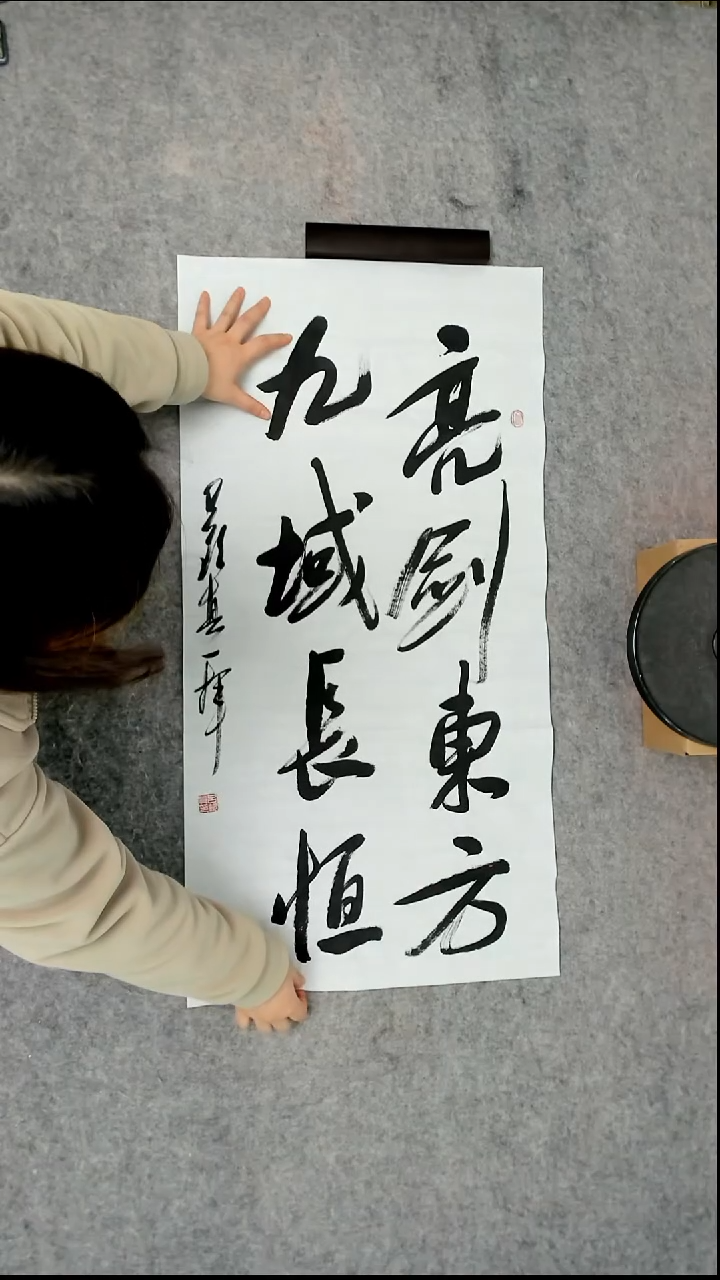 亮剑東方
九域長恒